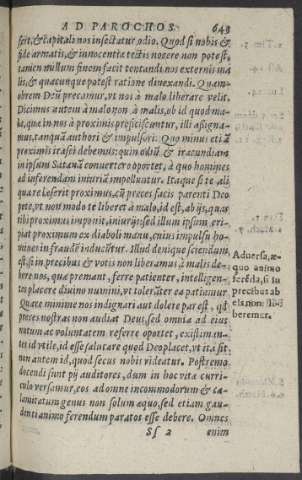 AD PAROCHOS. 643
ferit, & capitali nos insectatur odio. Quod si nobis &
fide armatis, & innocentia tectis nocere non potest,
tamen nullum finem facit tentandi nos externis ma
lis, & quacunque potest ratione divexandi. Quam-
obrem Deũ precamur, vt nos à malo liberare velit.
Dicimus autem à malo, non à malis, ab id quod ma-
la, quæ in nos à proximis proficiscuntur, illi assigna-
mus, tanquã authori & impulsori. Quo minus etiã
proximis irasci debemus: quin odiũ & iracundiam
in ipsum Satanã convertere oportet, à quo homines
ad inferendam iniuriã impelluntur. Itaque si te ali
qua re læserit proximus, cũ preces facis parenti Deo
pete, vt non modo te liberet à malo, id est, ab ijs, quas
tibi proximus imponit, iniurijs: sed illum ipsum eri-
piat proximum ex diaboli manu, cuius impulsu ho-
mines in fraudẽ inducũtur. Illud denique sciendum
est, si in precibus & votis non liberamur à malis, de
bere nos, quæ premant, ferre patienter, intelligen-
tes placere divino numini, vt tolerãter ea patiamur.
Quare minime nos indignari aut dolere par est, qđ
preces nostras non audiat Deus, sed omnia ad eius
nutum ac voluntatem referre oportet, existiman-
tes id vtile, id esse salutare quod Deo placet, vt ita sit,
non autem id, quod secus nobis videatur. Postremo
docendi sunt pij auditores, dum in hoc vitæ curri-
culo versamur, eos ad omne incommodorum & ca-
lamitatum genus non solum æquo, sed etiam gau-
denti animo ferendum paratos esse debere. Omnes
Sf 2 enim
Adversa, æ-
quo animo
ferẽda, si in
precibus ab
eis non libe
remur.